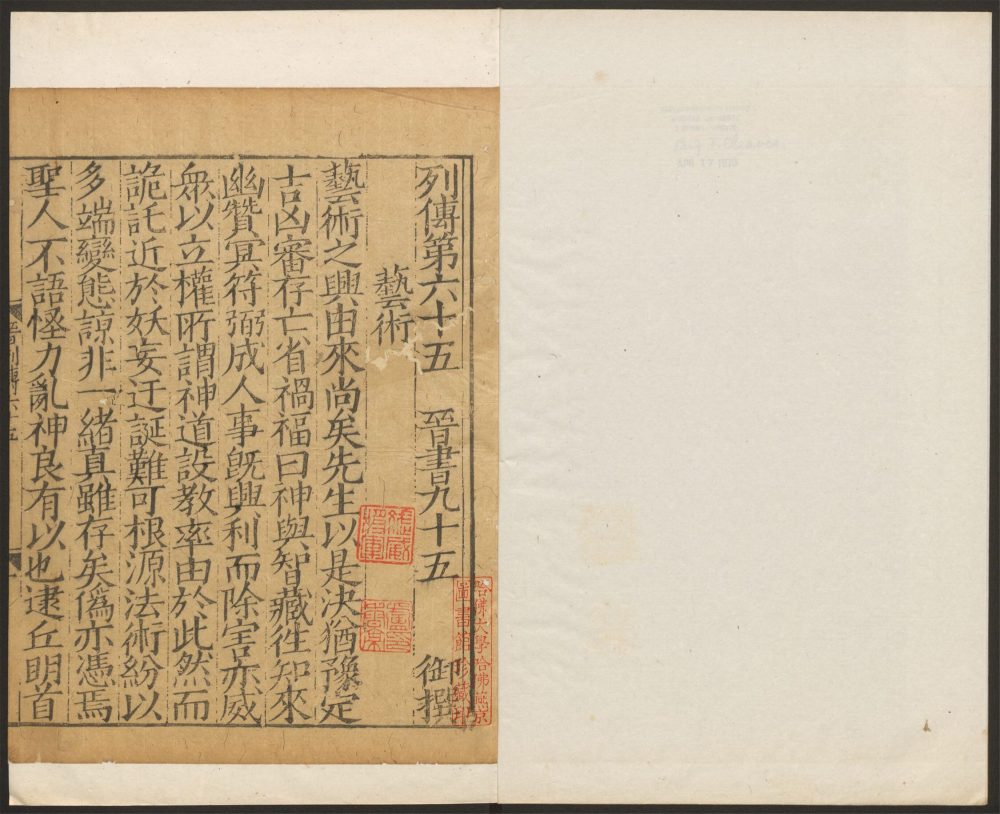 列傳第六十五　晉書九十五　御撰
藝術
藝術之興由來尚矣先生以是決猶豫定
吉凶審存亡省禍福曰神與智藏徃知來
幽贊冥符弼成人事旣興利而除害亦威
衆以立權所謂神道設教率由於此然而
詭託近於妖妄迂誕難可根源法術紛以
多端變態諒非一緒真雖存矣僞亦憑焉
聖人不語怪力亂神良有以也逮丘明首
晉列傳六十五
哈佛大學哈佛燕京
圖書館珍藏印